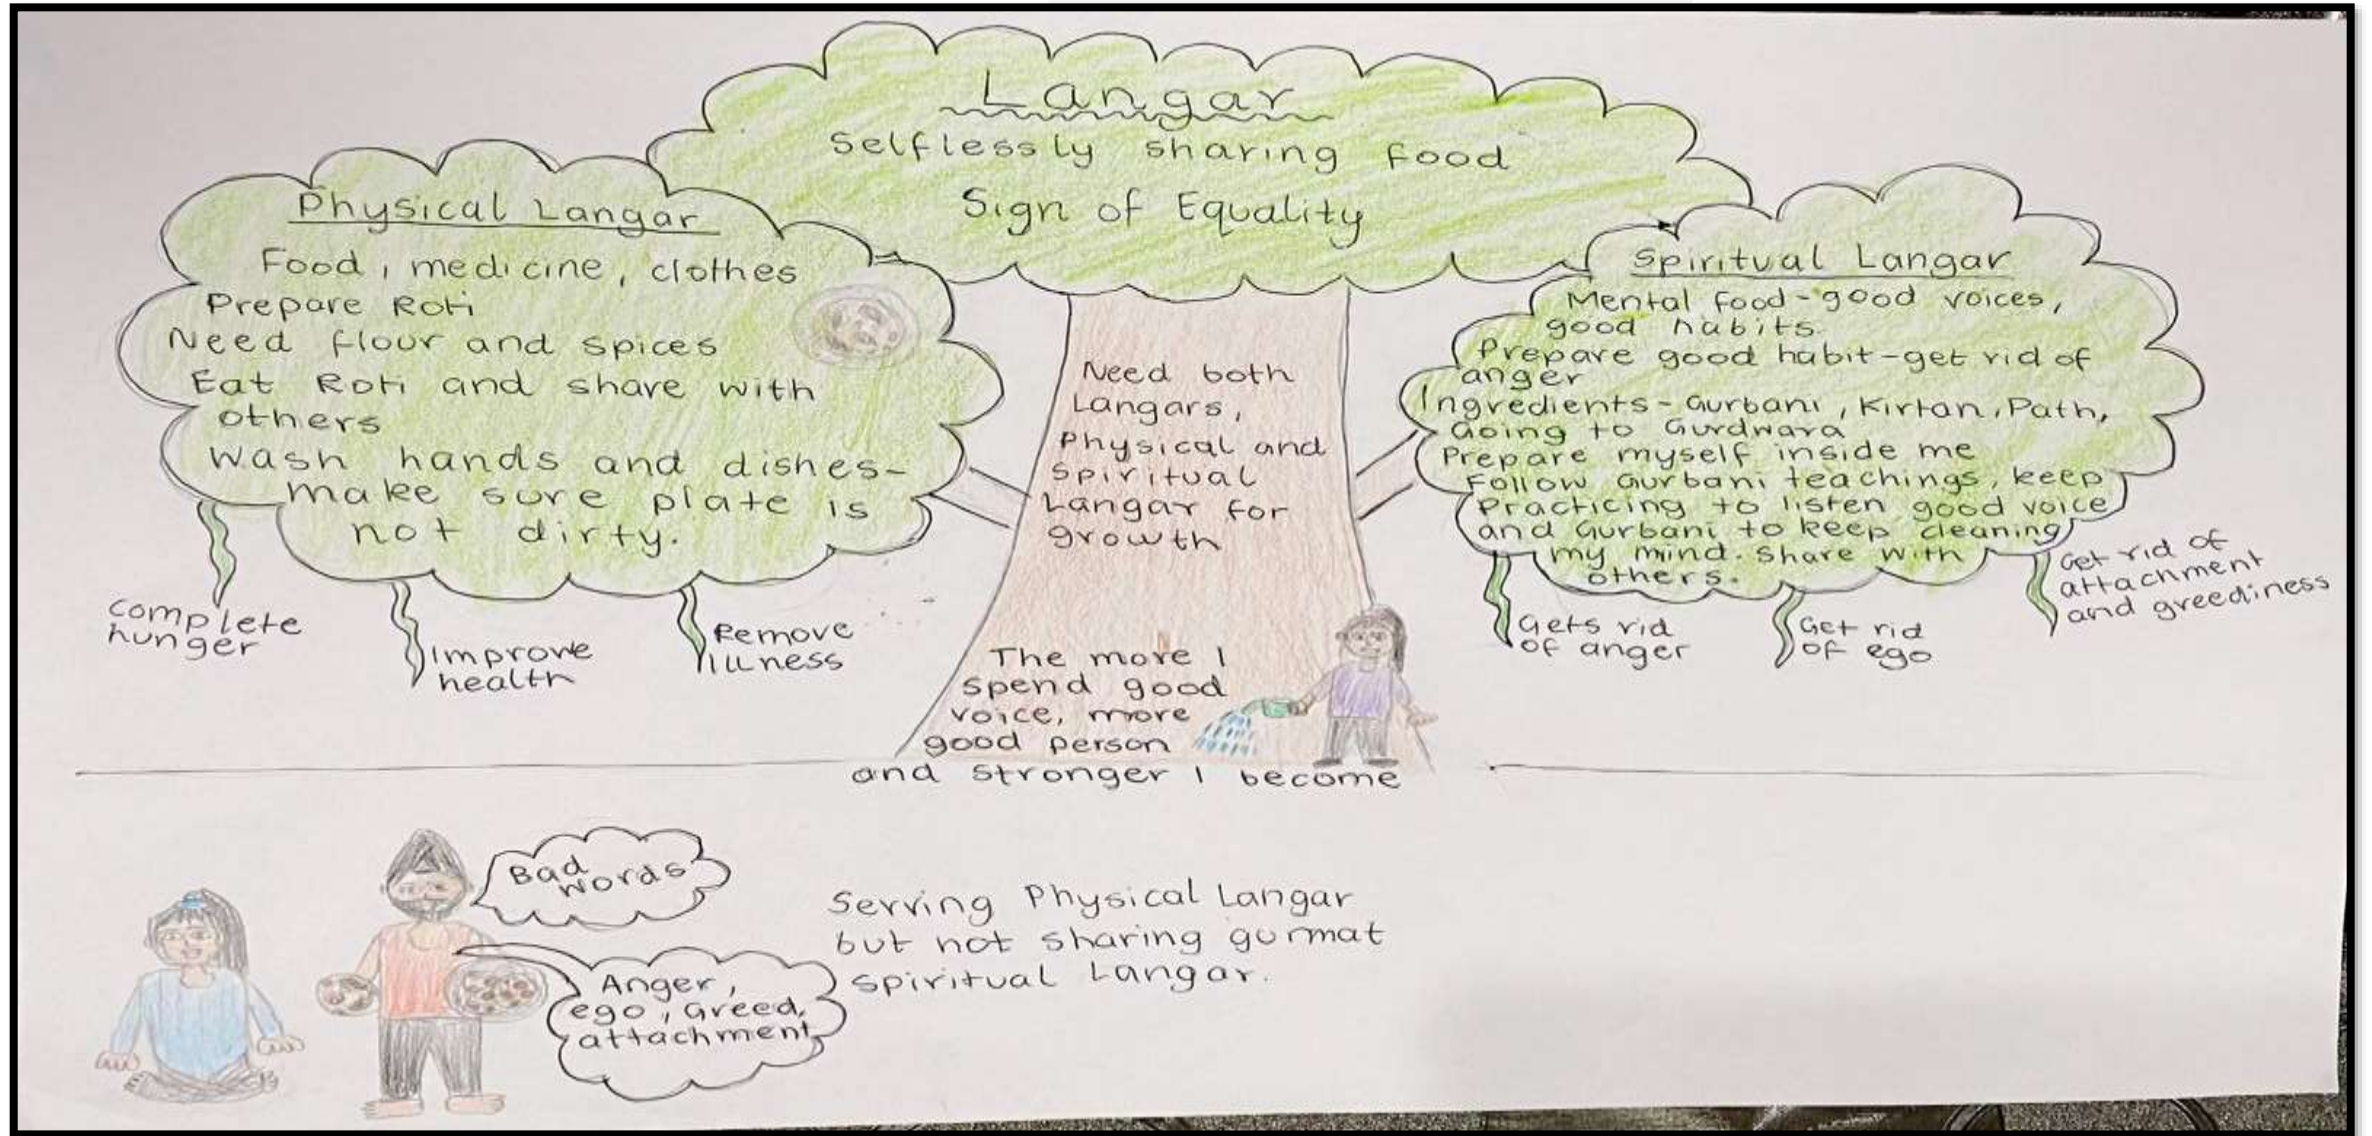 Langar
Selflessly sharing food
Sign of Equality
Physical Langar
Food, medicine, clothes
Prepare Roti
Need flour and spices
Eat Roti and share with
others
Wash hands and dishes-
make sure plate is
not dirty.
complete
hunger
Improve
health
Remove
illness
Need both
Langars,
Physical and
Spiritual
Langar for
growth
The more I
spend good
voice, more
good person
and stronger I become
Spiritual Langar
Mental food-good voices,
good habits.
Prepare good habit-get rid of
anger
Ingredients-Gurbani, Kirtan, Path,
Going to Gurdwara
Prepare myself inside me
Follow Gurbani teachings, keep
Practicing to listen good voice
and Gurbani to keep cleaning
my mind. Share with
others.
Gets rid
of anger
Get rid
of ego
Get rid of
attachment
and greediness
Bad
words
Anger,
ego, Greed,
attachment
Serving Physical Langar
but not sharing gurmat
spiritual Langar.